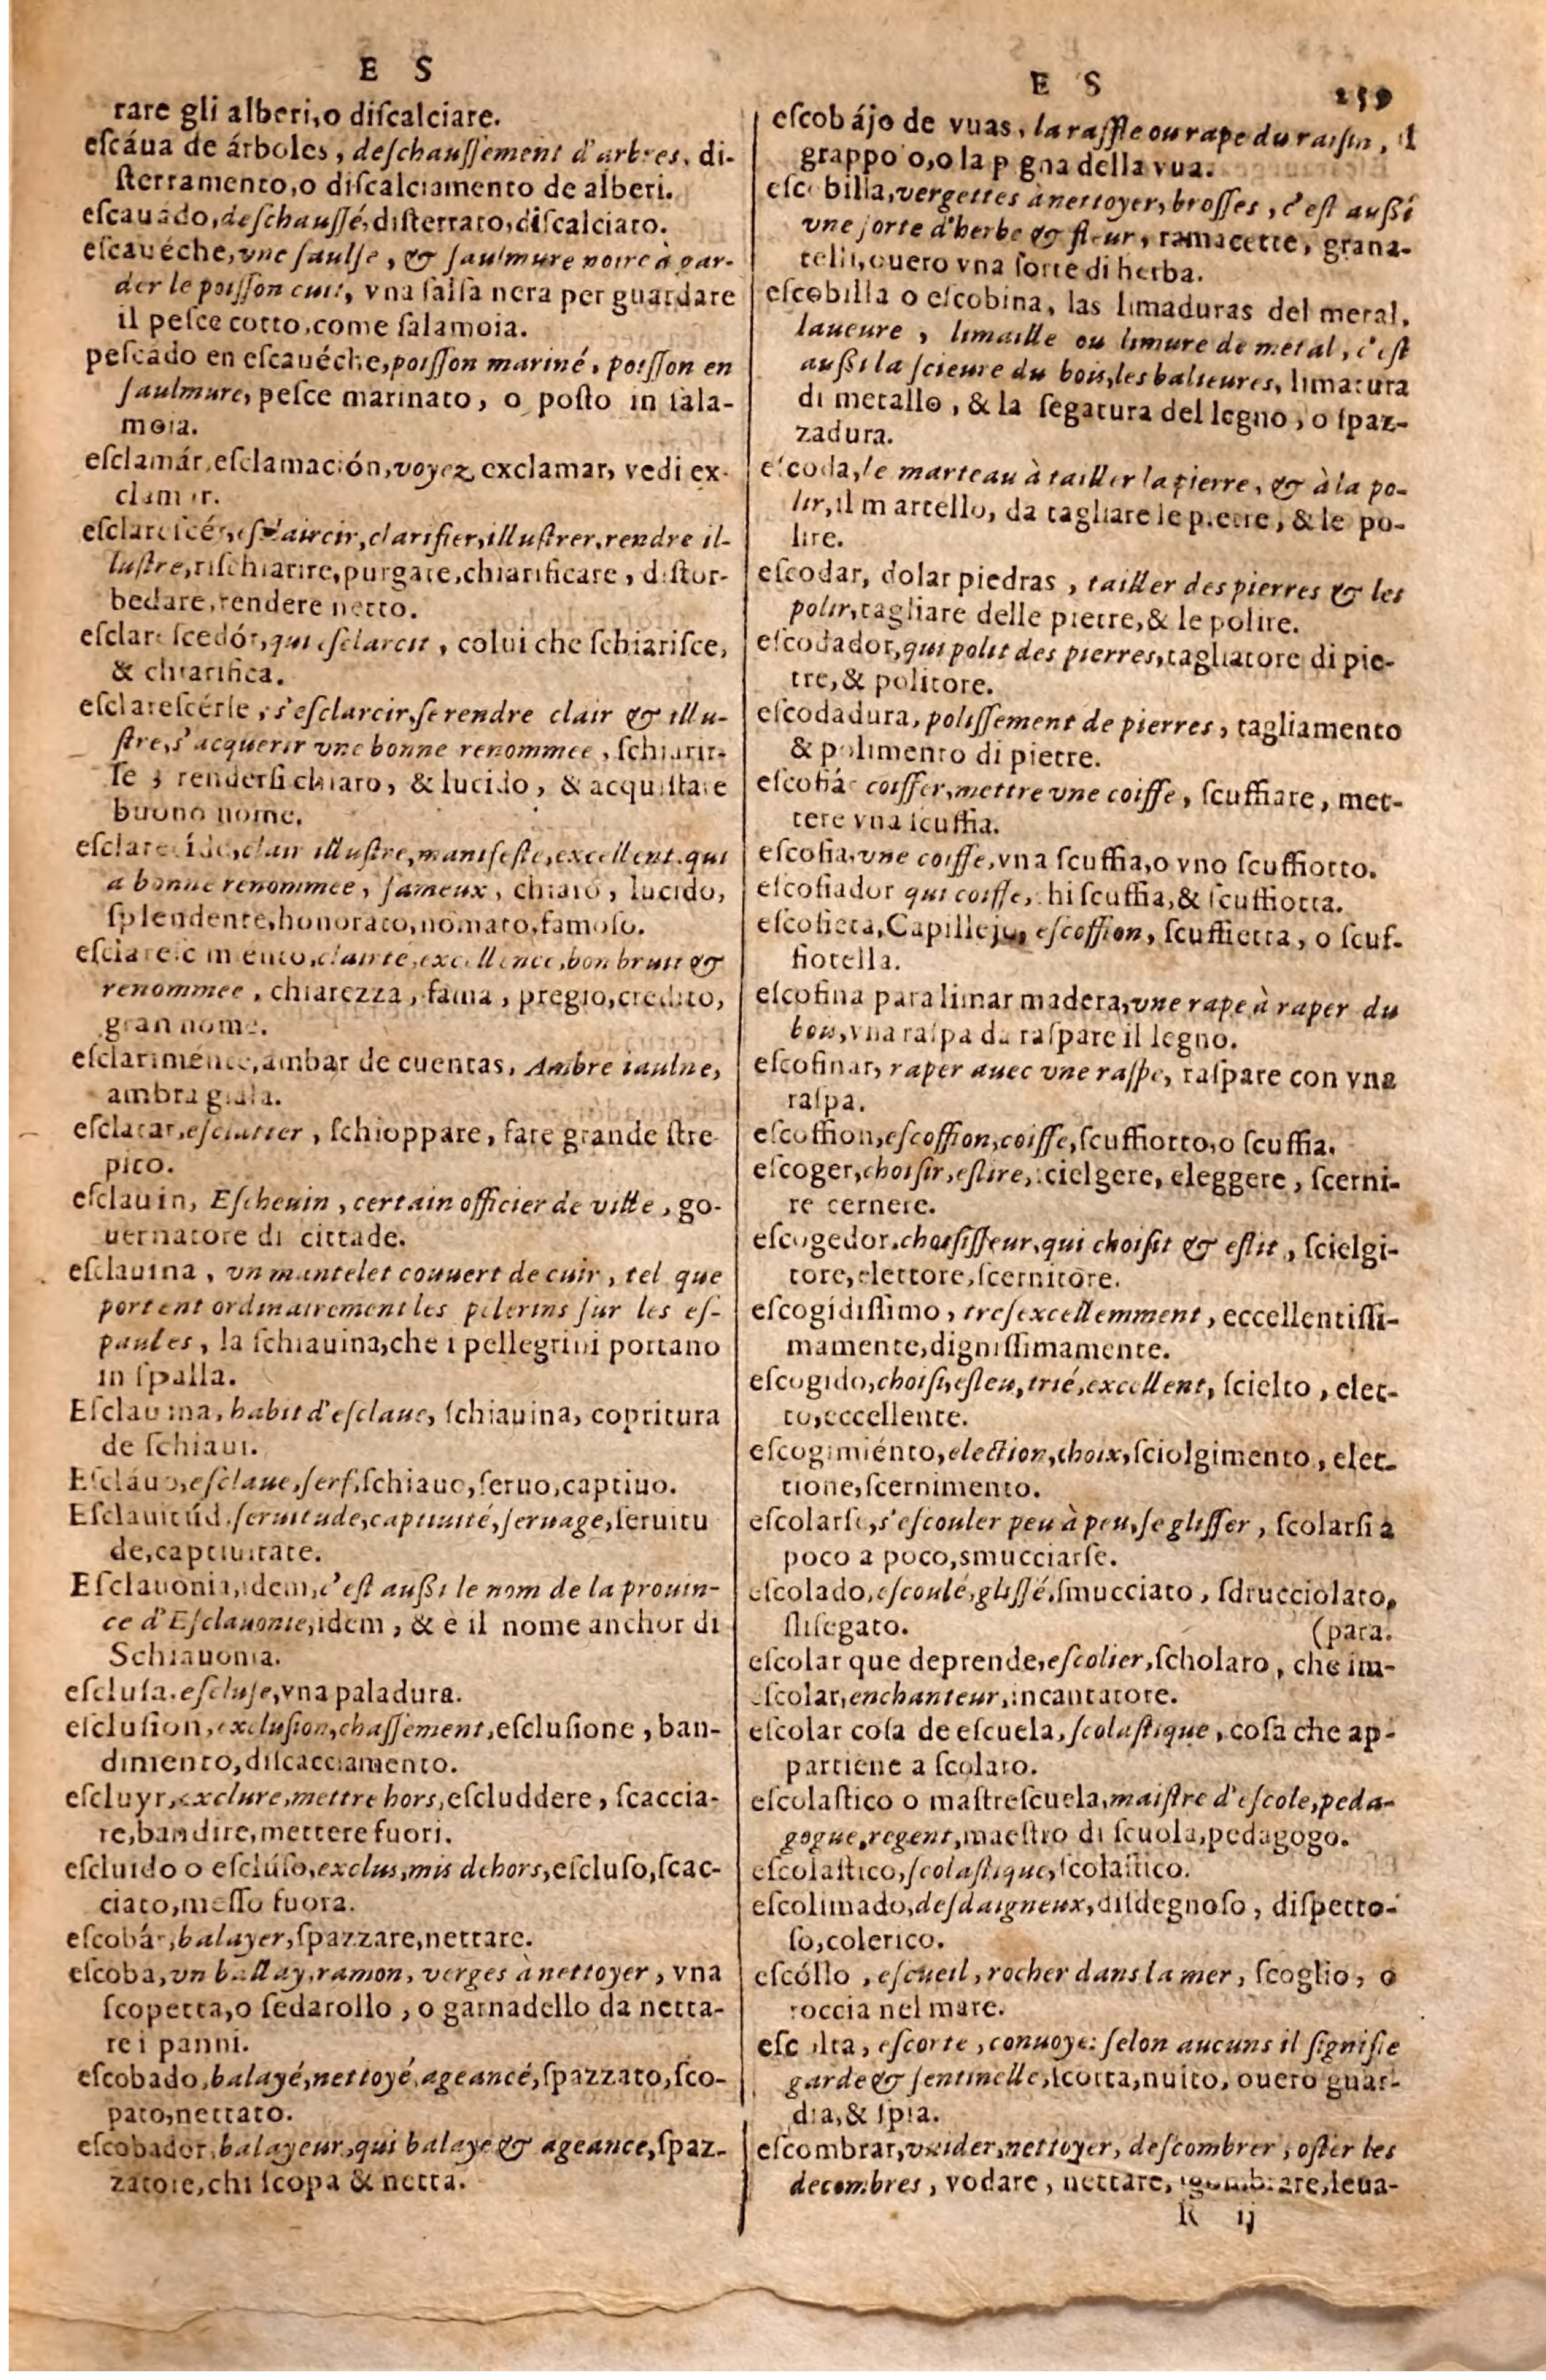 E S
rare gli alberi,o diſcalciare.
eſcáua de árboles, deſchauſſement d'arbres, di-
ſterramento,o diſcalciamento de alberi.
eſcauádo,deſchauſſé,diſterrato,diſcalciato.
eſcauéche,vne ſaulſe, & ſaulmure noire à gar-
der le poiſſon cuit, vna ſalſa nera per guardare
il peſce cotto,come ſalamoia.
peſcádo en eſcauéche,poiſſon mariné, poiſſon en
ſaulmure, peſce marinato, o poſto in ſala-
moia.
eſclamár,eſclamación,voyez exclamar, vedi ex-
clamar.
eſclareſcér,eſclaircir,clarifier,illuſtrer,rendre il-
luſtre,riſchiarire,purgare,chiarificare, diſtor-
bedare,rendere netto.
eſclareſcedór,qui eſclarcit, colui che ſchiariſce,
& chiarifica.
eſclareſcérſe, s'eſclarcir,ſe rendre clair & illu-
ſtre,s'acquerir vne bonne renommee, ſchiarir-
ſe, renderſi chiaro, & lucido, & acquiſtare
buono nome.
eſclarecído,clair illuſtre,manifeſte,excellent.qui
a bonne renommee, fameux, chiaro, lucido,
ſplendente,honorato,nomato,famoſo.
eſclareſcimiento,clairté,excellence,bon bruit &
renommee, chiarezza, fama, pregio,credito,
gran nome.
eſclariménte,ambar de cuentas, Ambre iaulne,
ambra giala.
eſclatar,eſclatter, ſchioppare, fare grande ſtre
pito.
eſclauin, Eſcheuin, certain officier de ville, go-
uernatore di cittade.
eſclauina, vn mantelet couuert de cuir, tel que
portent ordinairement les pelerins ſur les eſ-
paules, la ſchiauina,che i pellegrini portano
in ſpalla.
Eſclauina, habit d'eſclaue, ſchiauina, copritura
de ſchiaui.
Eſcláuo,eſclaue,ſerf,ſchiauo,ſeruo,captiuo.
Eſclauitúd,ſeruitude,captiuité,ſeruage,ſeruitu
de,captiuitate.
Eſclauónia,idem,c'eſt auſſi le nom de la prouin-
ce d'Eſclauonie,idem, & è il nome anchor di
Schiauonia.
eſcluſa.eſcluſe,vna paladura.
eſcluſion,excluſion,chaſſement,eſcluſione, ban-
dimento,diſcacciamento.
eſcluyr,exclure,mettre hors,eſcluddere, ſcaccia-
re,bandire,mettere fuori.
eſcluido o eſclúſo,exclus,mis dehors,eſcluſo,ſcac-
ciato,meſſo fuora.
eſcobár,balayer,ſpazzare,nettare.
eſcoba,vn ballay,ramon, verges à nettoyer, vna
ſcopetta,o ſedarollo, o garnadello da netta-
re i panni.
eſcobado,balayé,nettoyé,ageancé,ſpazzato,ſco-
pato,nettato.
eſcobador,balayeur,qui balaye & ageance,ſpaz-
zatore,chi ſcopa & netta.
E S
259
eſcobájo de vuas, la raffle ou rape du raiſin, il
grappo o,o la p gna della vua.
eſcobilla,vergettes à nettoyer,broſſes, c'eſt auſſi
vne ſorte d'herbe & fleur, ramacette, grana-
telli,ouero vna ſorte di herba.
eſcobilla o eſcobina, las limaduras del metal,
laueure, limaille ou limure de metal, c'eſt
auſſi la ſcieure du bois,les balieures, limatura
di metallo, & la ſegatura del legno, o ſpaz-
zadura.
eſcoda,le marteau à tailler la pierre, & à la po-
lir,il martello, da tagliare le pietre, & le po-
lire.
eſcodar, dolar piedras, tailler des pierres & les
polir,tagliare delle pietre,& le polire.
eſcodador,qui polit des pierres,tagliatore di pie-
tre,& politore.
eſcodadura, poliſſement de pierres, tagliamento
& polimento di pietre.
eſcofiár coiffer,mettre vne coiffe, ſcuffiare, met-
tere vna ſcuffia.
eſcofia,vne coiffe,vna ſcuffia,o vno ſcuffiotto.
eſcofiador qui coiffe, chi ſcuffia,& ſcuffiotta.
eſcofieta,Capillejo, eſcoffion, ſcuffietta, o ſcuf-
fiotella.
eſcofina para limar madera,vne rape à raper du
bois,vna raſpa da raſpare il legno.
eſcofinar, raper auec vne raſpe, raſpare con vna
raſpa.
eſcoffion,eſcoffion,coiffe,ſcuffiotto,o ſcuffia.
eſcoger,choiſir,eſlire,ſcielgere, eleggere, ſcerni-
re cernere.
eſcogedor,choiſiſſeur,qui choiſit & eſlit, ſcielgi-
tore,elettore,ſcernitore.
eſcogídiſſimo, treſexcellemment, eccellentiſſi-
mamente,digniſſimamente.
eſcogido,choiſi,eſleu,trié,excellent, ſcielto, elet-
to,eccellente.
eſcogimiénto,election,choix,ſciolgimento, elet-
tione,ſcernimento.
eſcolarſe,s'eſcouler peu à peu,ſe gliſſer, ſcolarſi a
poco a poco,smucciarſe.
eſcolado,eſcoulé,gliſſé,ſmucciato, ſdrucciolato,
ſliſegato. (para.
eſcolar que deprende,eſcolier,ſcholaro, che im-
eſcolar,enchanteur,incantatore.
eſcolar coſa de eſcuela,ſcolaſtique, coſa che ap-
partiene a ſcolaro.
eſcolaſtico o maſtreſcuela,maiſtre d'eſcole,peda-
gogue,regent,maeſtro di ſcuola,pedagogo.
eſcolaſtico,ſcolaſtique,ſcolaſtico.
eſcolimado,deſdaigneux,diſdegnoſo, diſpetto-
ſo,colerico.
eſcóllo, eſcueil, rocher dans la mer, ſcoglio, o
roccia nel mare.
eſc lta, eſcorte, conuoye: ſelon aucuns il ſignifie
garde & ſentinelle,ſcorta,nuito, ouero guar-
dia,& ſpia.
eſcombrar,vuider,nettoyer, deſcombrer, oſter les
decombres, vodare, nettare, ſgombrare,leua-
R ij